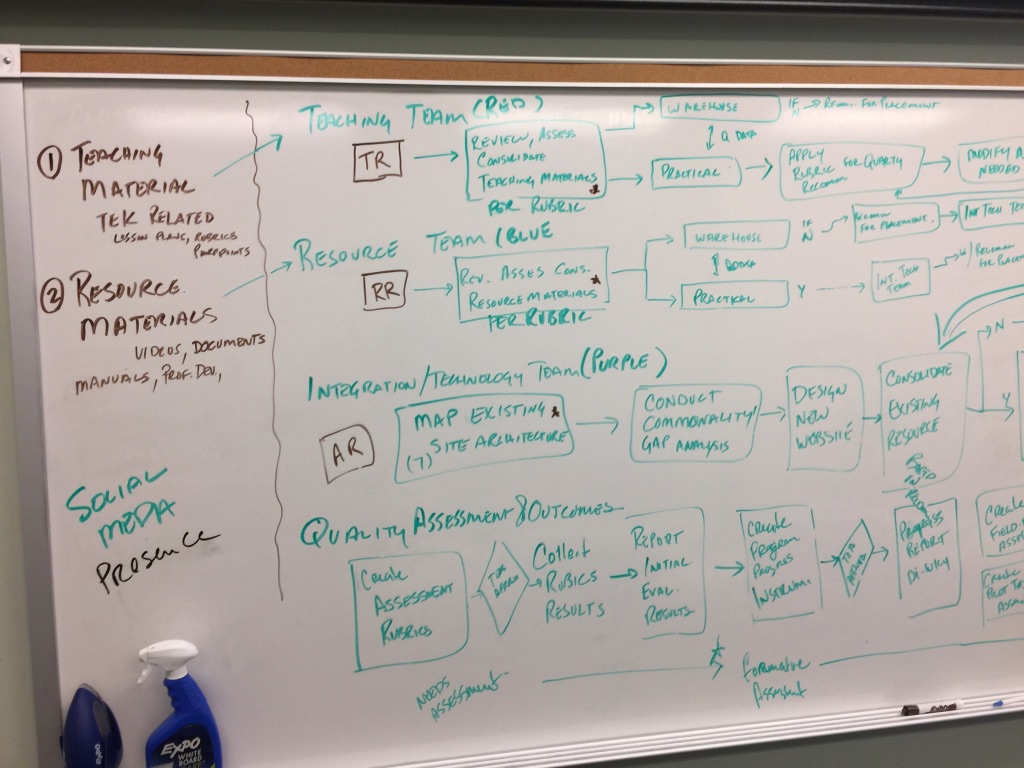 ① TEACHING
MATERIAL
TEK RELATED
LESSON PLANS, RUBRICS
② RESOURCE
MATERIALS
VIDEOS, DOCUMENTS
MANUALS, PROF. DEV,
SOCIAL
MEDIA
PRESENCE
TEACHING TEAM (RED)
TR
REVIEW, ASSESS
CONSOLIDATE
TEACHING MATERIALS
PER RUBRIC
WAREHOUSE
IF
N
FOR PLACEMENT
DATA
PRACTICAL
APPLY
RUBRIC FOR QUALITY
RECOMM
MODIFY A
NEEDED
RESOURCE TEAM (BLUE
RR
REV. ASSES CONS.
RESOURCE MATERIALS
PER RUBRIC
WAREHOUSE
IF
N
FOR PLACEMENT.
INT TECH TE
PRACTICAL
Y
INT. TECH
TEAM
W/ RECOMM
FOR PLACE
INTEGRATION/TECHNOLOGY TEAM (PURPLE)
AR
MAP EXISTING
(7) SITE ARCHITECTURE
CONDUCT
COMMONALITY/
GAP ANALYSIS
DESIGN
NEW
WEBSITE
CONSOLIDATE
EXISTING
RESOURCE
N
Y
QUALITY ASSESSMENT & OUTCOMES
CREATE
ASSESSMENT
RUBRICS
COLLECT
RUBICS
RESULTS
REPORT
INITIAL
EVAL.
RESULTS
CREATE
PROGRAM
PROGRESS
INSTRUM.
TEA
PROGRESS
REPORT
BI-WKLY
CREATE
FIELD
ASSES
CREATE
PILOT
NEEDS
ASSESSMENT
FORMATIVE
ASSESSMENT
EXPO
EXPO
WHITE
BOARD